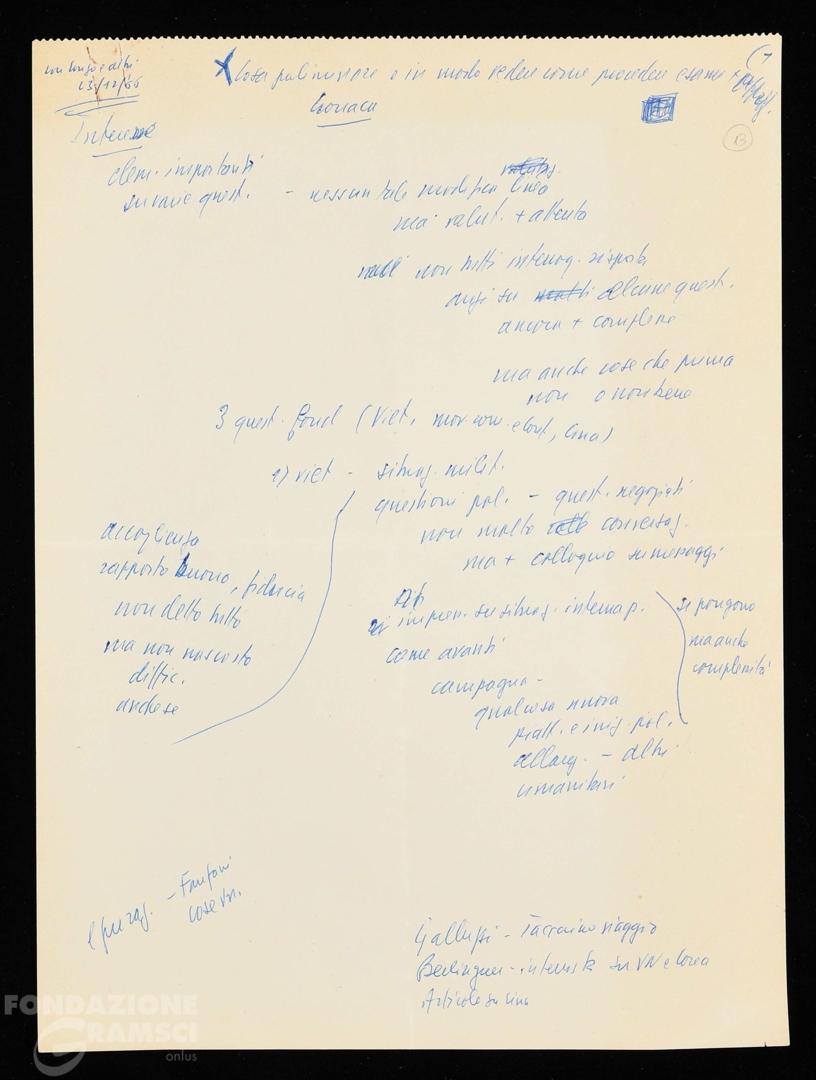 con Longo e altri
23/12/66
x Cosa preliminare o in modo vedere come procedere esame +
Cronaca
13
Interesse
elem. importanti
su varie quest. - nessun tale modifica linea
ma valut. + attenta
non tutti interrog. risposta
anzi su alcune quest.
ancora + complesse
ma anche cose che prima
non o non bene
3 quest. fond (Viet, mov. com. e Cort, Cina)
1) viet - situaz. milit.
questioni pol. - quest. negoziati
non molto conversaz.
ma + colloquio su messaggi
accoglienza
rapporto buono, fiducia
non detto tutto
ma non nascosto
diffic.
anche se
impress. su situaz. internaz.
come avanti
campagna -
qualcosa nuova
piatt. e iniz. pol.
allarg. - altri
umanitari
si pongono
ma anche
complessità
epuraz. - Trufoni
cose
Galluzzi - Taccuino viaggio
Berlinguer - intervista su VN e Corea
Articolo su Cina
FONDAZIONE
GRAMSCI
onlus